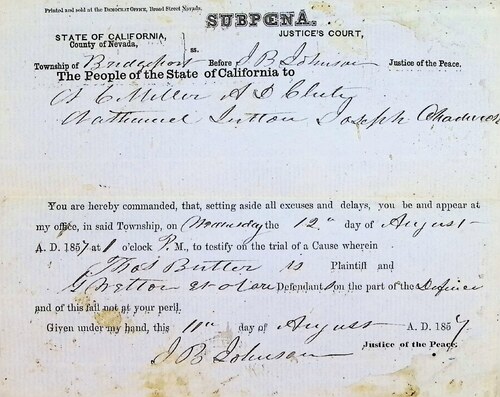 Printed and sold at the DEMOCRAT OFFICE, Broad Street Nevada.
SUBPŒNA.
STATE OF CALIFORNIA, JUSTICE'S COURT,
County of Nevada, ss.
Township of Bridgeport Before J B Johnson Justice of the Peace.
The People of the State of California to
A C Miller A D Cluty
Nathaniel Sutton Joseph Chadwick
You are hereby commanded, that, setting aside all excuses and delays, you be and appear at
my office, in said Township, on Wednesday the 12th day of August
A. D. 1857 at 1 o'clock P.M., to testify on the trial of a Cause wherein
Thos Butler is Plaintiff and
G Wetton et al are Defendants on the part of the Defence
and of this fail not at your peril.
Given under my hand, this 11th day of August A. D. 1857
J B Johnson Justice of the Peace.